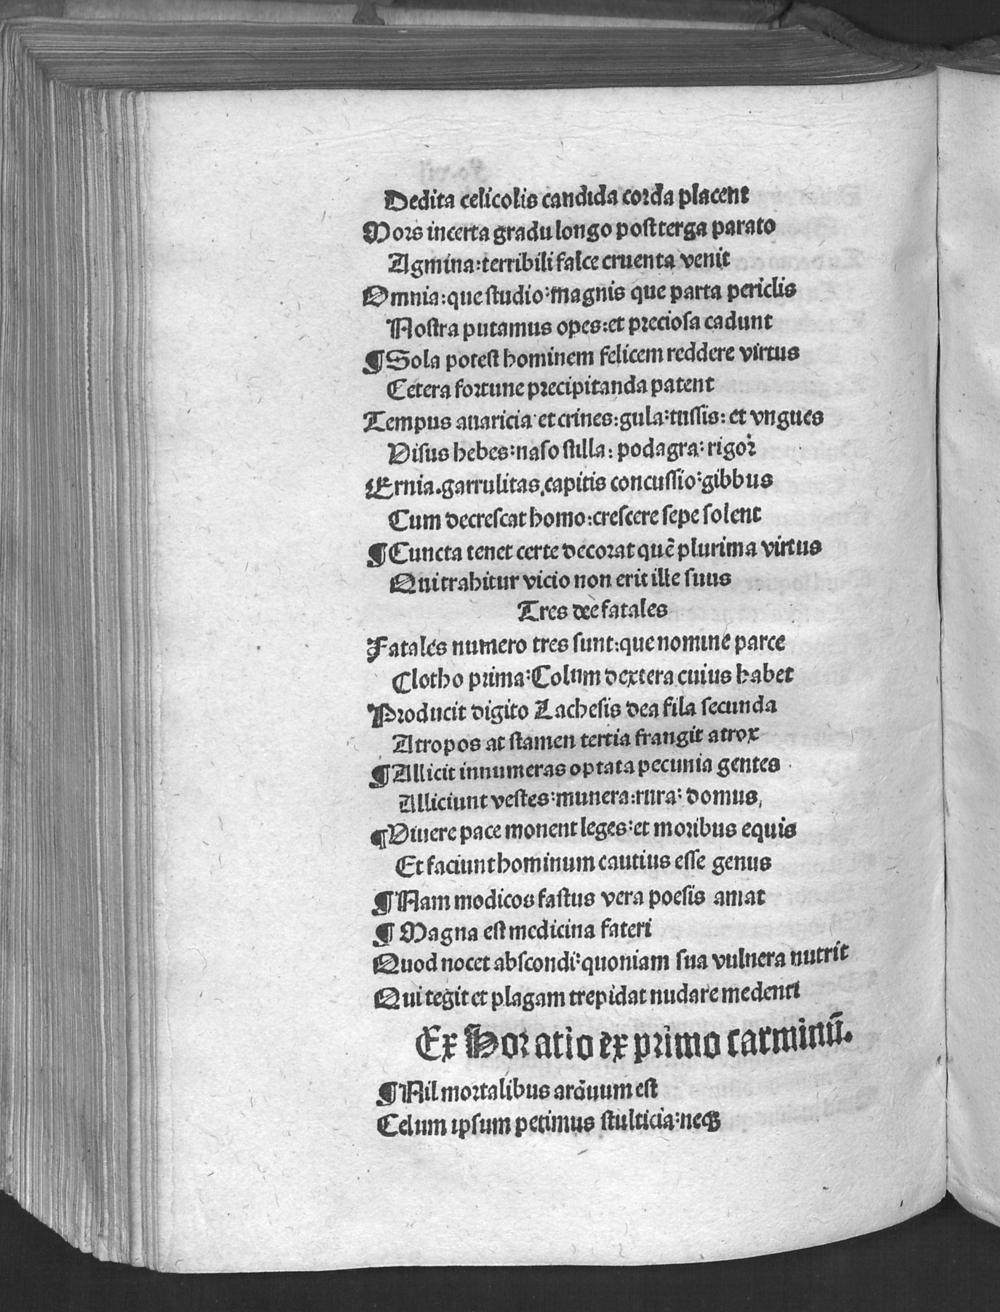 Dedita celicolis candida corda placent
Mors incerta gradu longo post terga parato
Agmina:terribili falce cruenta venit
Omnia:que studio:magnis que parta periclis
Nostra putamus opes:et preciosa cadunt
¶Sola potest hominem felicem reddere virtus
Cetera fortune precipitanda patent
Tempus auaricia et crines:gula:tussis:et vngues
Visus hebes:naso stilla:podagra:rigor
Ernia.garrulitas,capitis concussio:gibbus
Cum decrescat homo:crescere sepe solent
¶Cuncta tenet certe decorat quē plurima virtus
Qui trahitur vicio non erit ille suus
Tres dee fatales
Fatales numero tres sunt:que nomine parce
Clotho prima:Colum dextera cuius habet
Producit digito Lachesis dea fila secunda
Atropos at stamen tertia frangit atrox
¶Allicit innumeras optata pecunia gentes
Alliciunt vestes:munera:rura:domus,
¶Viuere pace monent leges:et moribus equis
Et faciunt hominum cautius esse genus
¶Nam modicos fastus vera poesis amat
¶Magna est medicina fateri
Quod nocet abscondi:quoniam sua vulnera nutrit
Qui tegit et plagam trepidat nudare medenti
Ex Horatio ex primo carminū.
¶Nil mortalibus arduum est
Celum ipsum petimus stulticia:neqꝫ